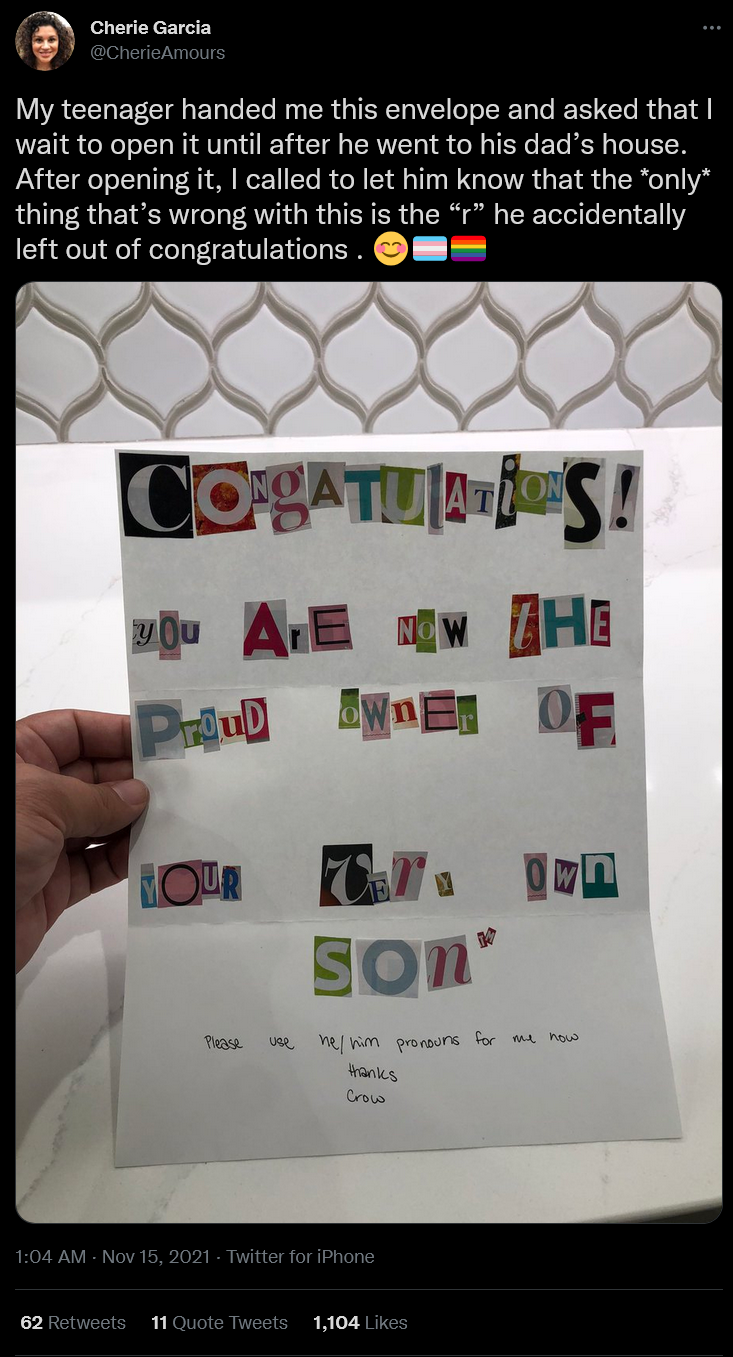 Cherie Garcia
@CherieAmours
My teenager handed me this envelope and asked that I
wait to open it until after he went to his dad’s house.
After opening it, I called to let him know that the *only*
thing that’s wrong with this is the “r” he accidentally
left out of congratulations . 😊🏳️‍⚧️🏳️‍🌈
CONgATULATiONS!
yOu ArE NoW tHE
ProuD oWnEr OF
YOUR VErY OWn
SOn™
Please use he/him pronouns for me now
thanks
Crow
1:04 AM · Nov 15, 2021 · Twitter for iPhone
62 Retweets 11 Quote Tweets 1,104 Likes